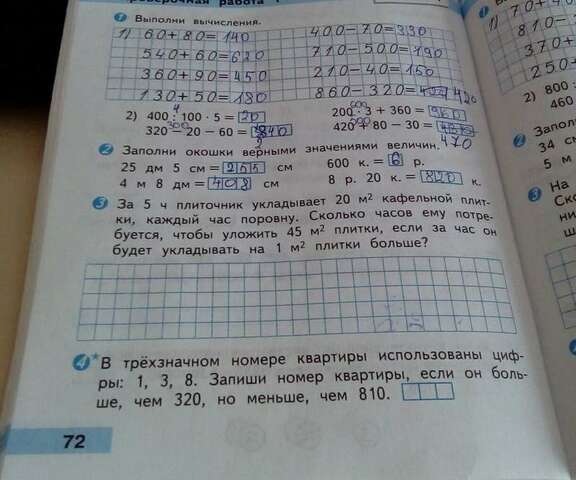 Проверочная работа
1 Выполни вычисления.
1) 60+80=140 400-70=330
540+60=620 710-500=190
360+90=450 210-40=150
130+50=180 860-320=420
2) 400 : 100 · 5 = 20 200 · 3 + 360 = 960
320 - 20 - 60 = 240 420 + 80 - 30 = 470
2 Заполни окошки верными значениями величин.
25 дм 5 см = 255 см 600 к. = 6 р.
4 м 8 дм = 408 см 8 р. 20 к. = 820 к.
3 За 5 ч плиточник укладывает 20 м² кафельной плит-
ки, каждый час поровну. Сколько часов ему потре-
буется, чтобы уложить 45 м² плитки, если за час он
будет укладывать на 1 м² плитки больше?
4* В трёхзначном номере квартиры использованы циф-
ры: 1, 3, 8. Запиши номер квартиры, если он боль-
ше, чем 320, но меньше, чем 810.
72
1)
810-
370
250
2) 800:
460
2 Запо
34 см
5 м
3 На
Ско